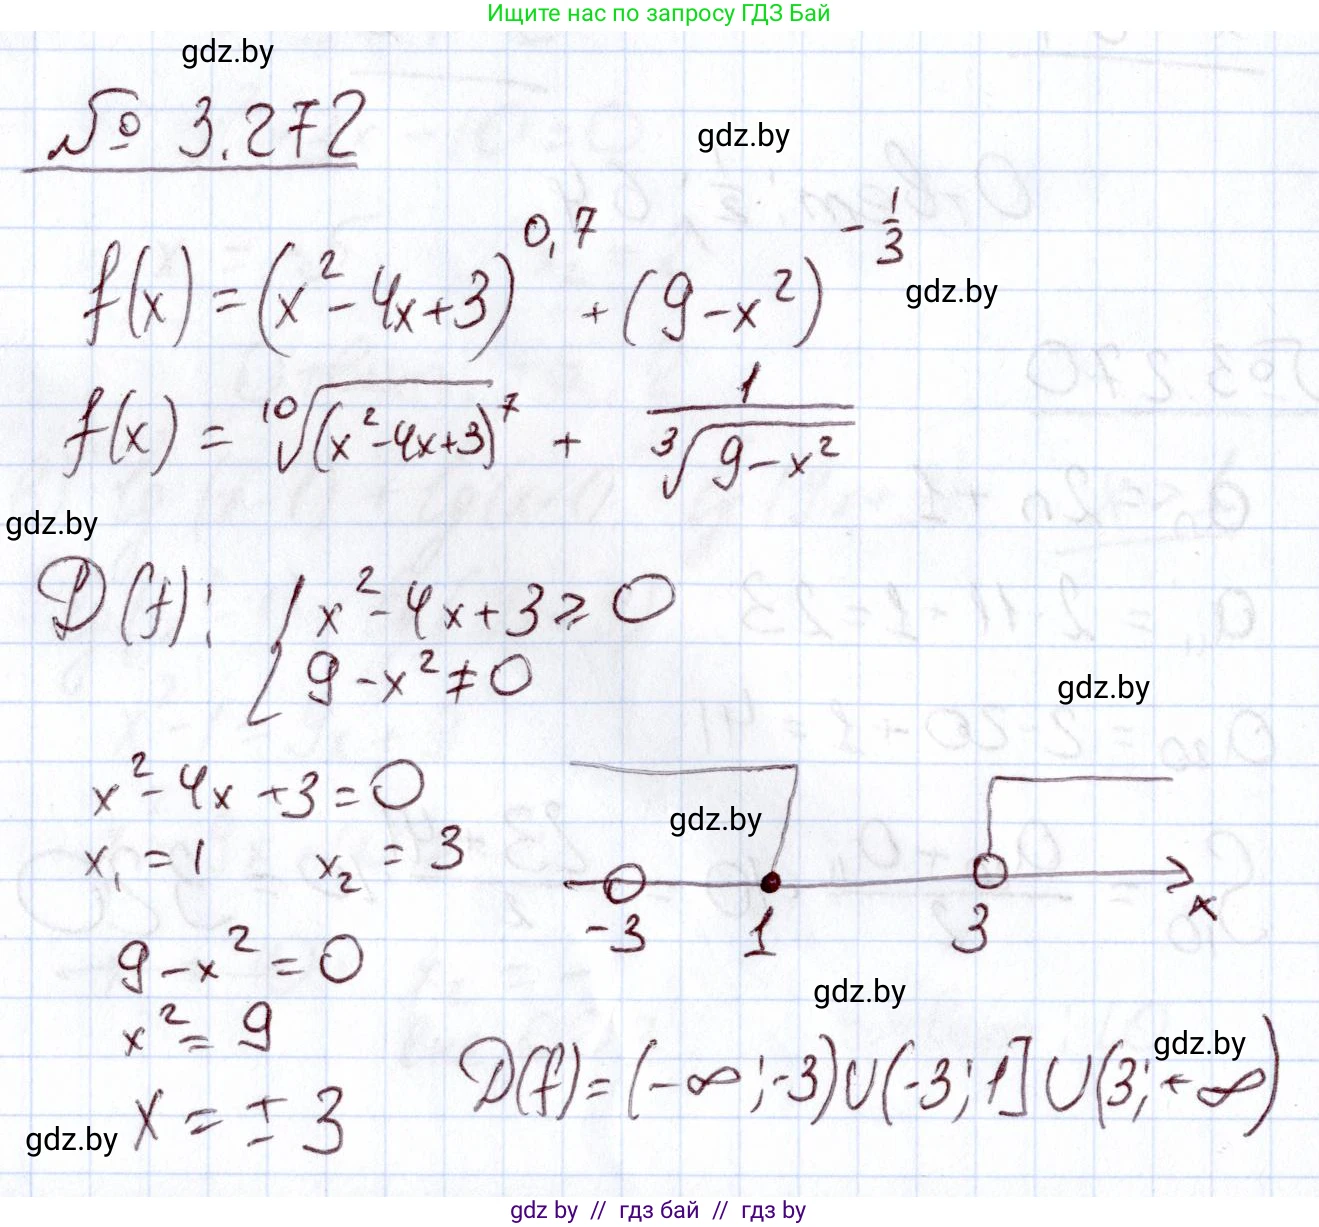 Ищите нас по запросу ГДЗ Бай
gdz.by
№ 3.272
gdz.by
f(x) = (x² - 4x + 3)^0,7 + (9 - x²)^-1/3
gdz.by
f(x) = ¹⁰√(x² - 4x + 3)⁷ + 1/³√9 - x²
gdz.by
D(f): { x² - 4x + 3 ≥ 0
9 - x² ≠ 0
gdz.by
x² - 4x + 3 = 0
gdz.by
x₁ = 1 x₂ = 3
-3 1 3 x
9 - x² = 0
gdz.by
x² = 9
gdz.by
D(f) = (-∞; -3) ∪ (-3; 1] ∪ (3; +∞)
x = ± 3
gdz.by
gdz by // гдз бай // гдз by